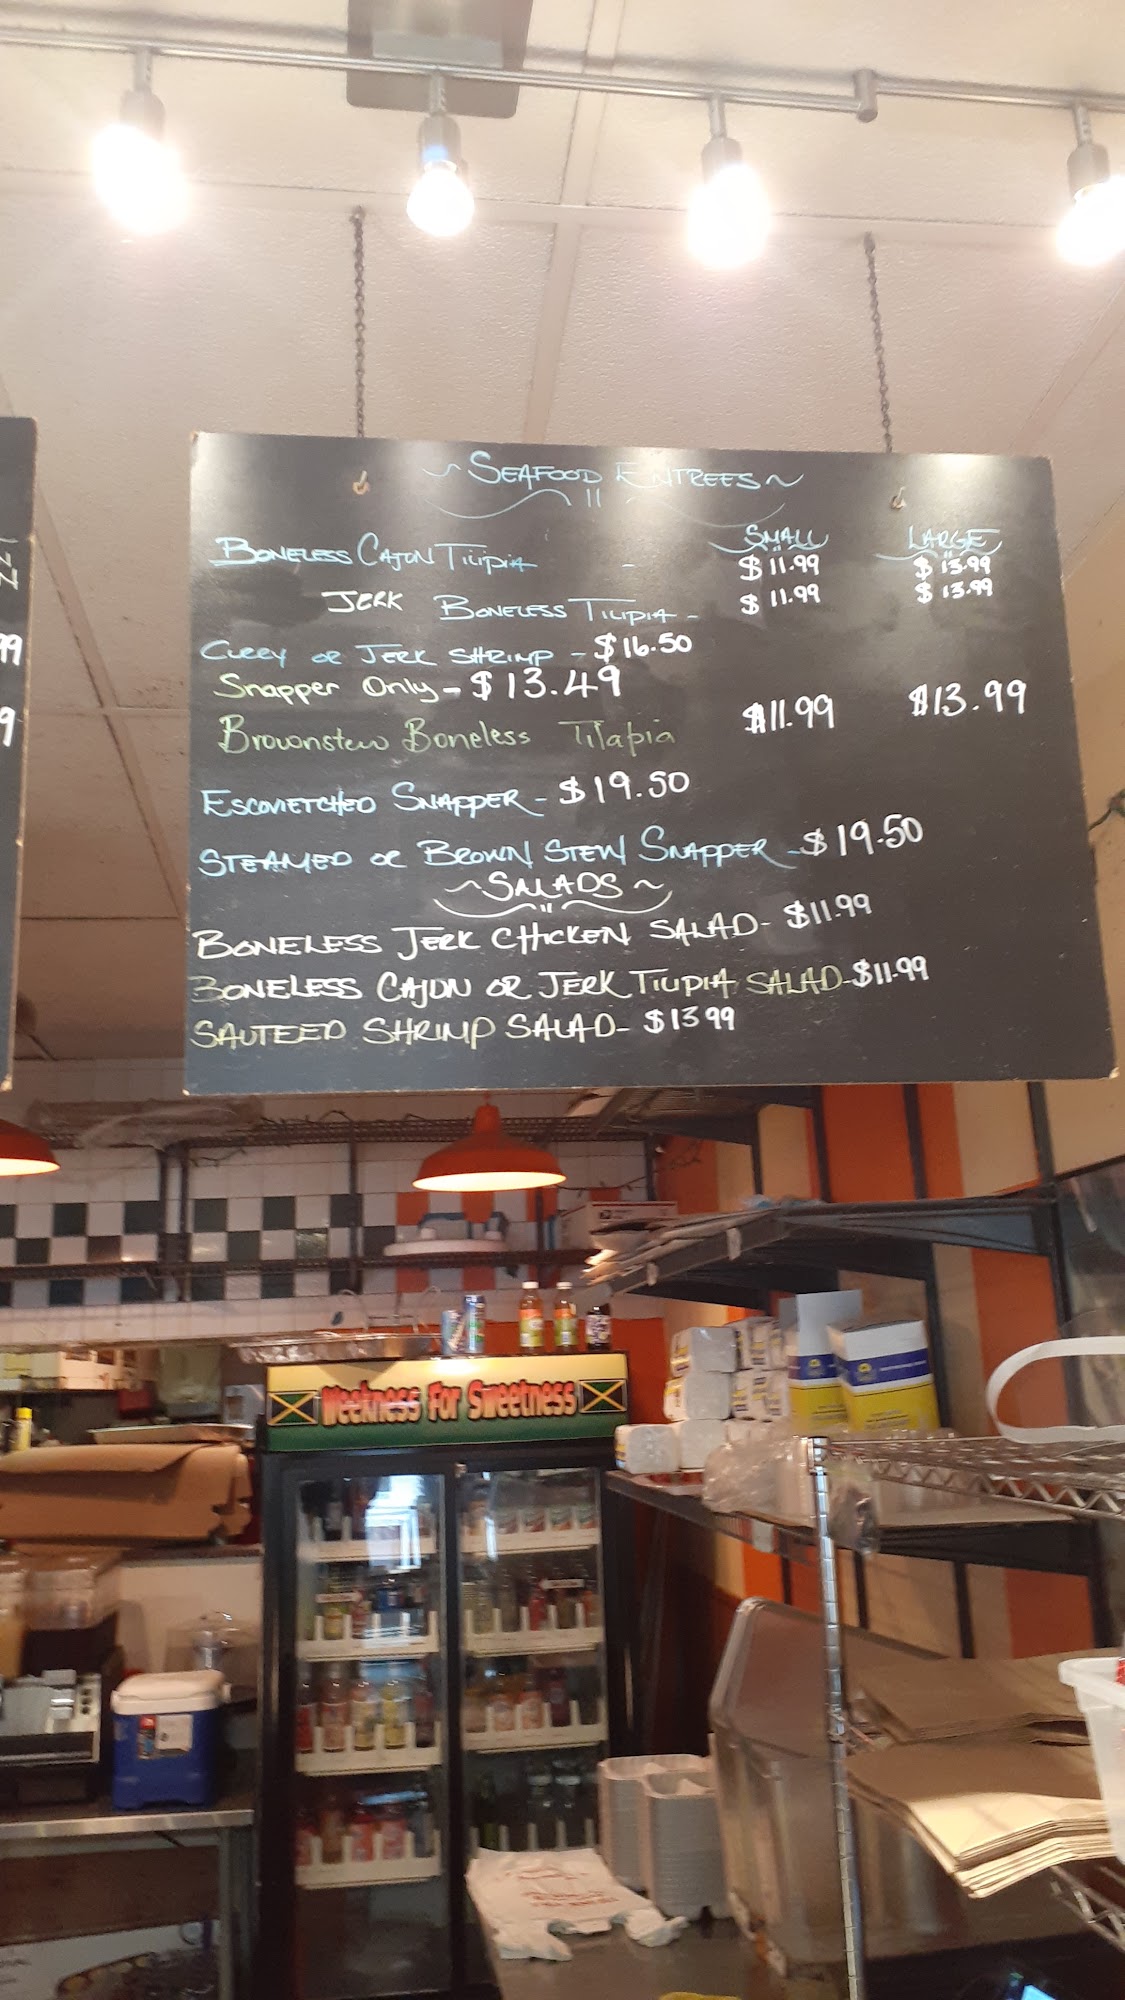 ~ SEAFOOD ENTREES ~
SMALL LARGE
BONELESS CAJUN TILIPIA - $11.99 $13.99
JERK BONELESS TILIPIA - $11.99 $13.99
CURRY OR JERK SHRIMP - $16.50
Snapper Only - $13.49
Brownstew Boneless Tilapia $11.99 $13.99
ESCOVIETCHED SNAPPER - $19.50
STEAMED OR BROWN STEW SNAPPER - $19.50
~ SALADS ~
BONELESS JERK CHICKEN SALAD - $11.99
BONELESS CAJUN OR JERK TILIPIA SALAD - $11.99
SAUTEED SHRIMP SALAD - $13 99
99
9
Weekness For Sweetness